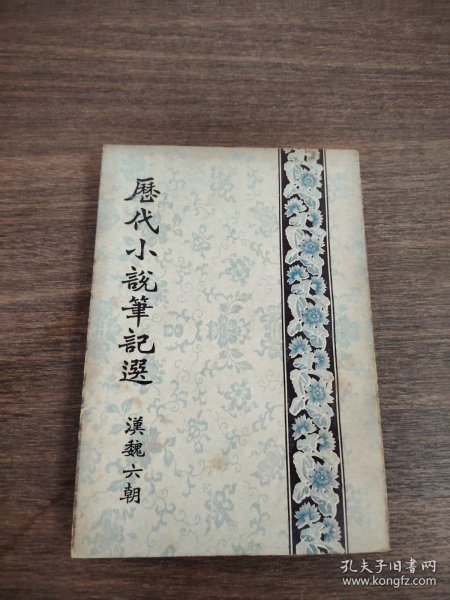 歷代小說筆記選
漢魏六朝
孔夫子旧书网
www.kongfz.com